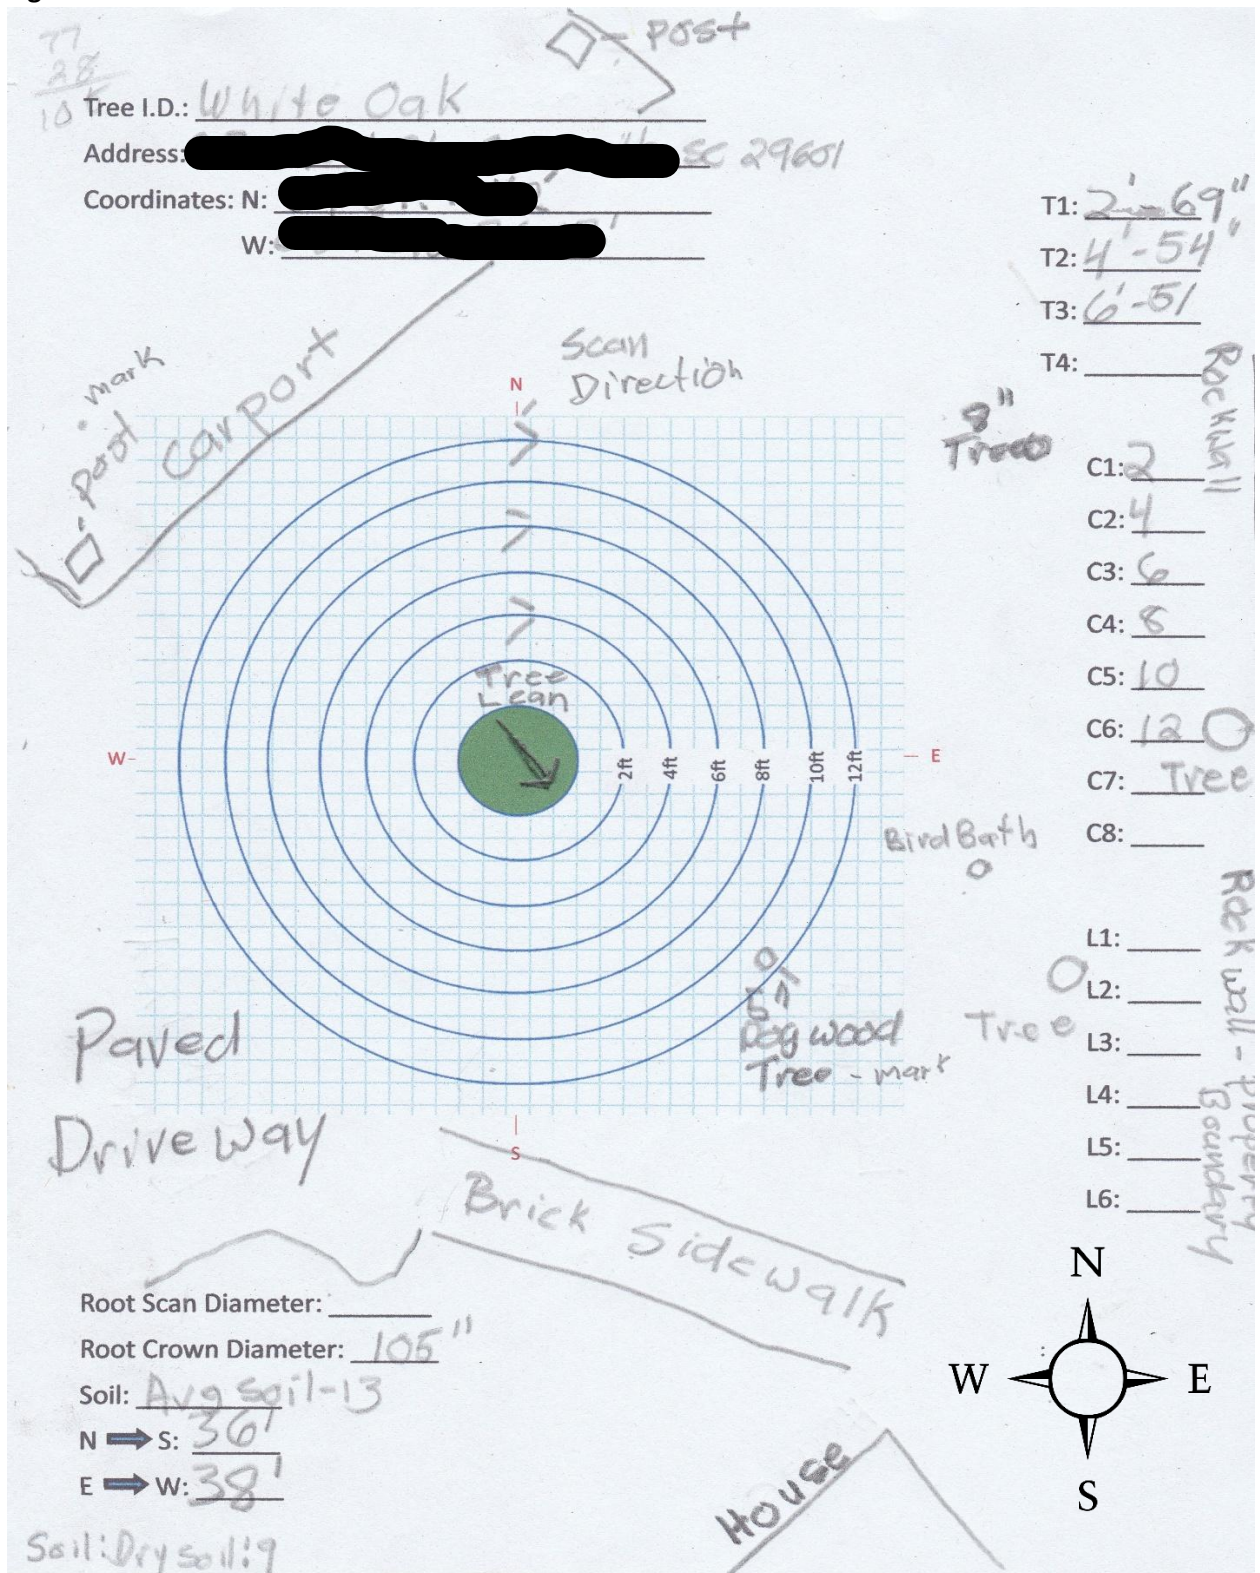 77
28
post
Tree I.D.: White Oak
Address: SC 29601
Coordinates: N:
W:
T1: 2' - 69"
T2: 4' - 54"
T3: 6' - 51
T4:
mark
post
carport
Scan
Direction
N
8"
Tree
Rockwall
C1: 2
C2: 4
C3: 6
C4: 8
C5: 10
C6: 12
C7:
C8:
Tree
Tree
Lean
W
2ft
4ft
6ft
8ft
10ft
12ft
E
Bird Bath
L1:
L2:
L3:
L4:
L5:
L6:
Tree
Rock wall - property
Boundary
Dogwood
Tree - mark
Paved
Driveway
S
Brick Sidewalk
Root Scan Diameter:
Root Crown Diameter: 105"
Soil: Avg soil-13
N S: 36'
E W: 38'
Soil: Dry soil: 9
House
N
W E
S